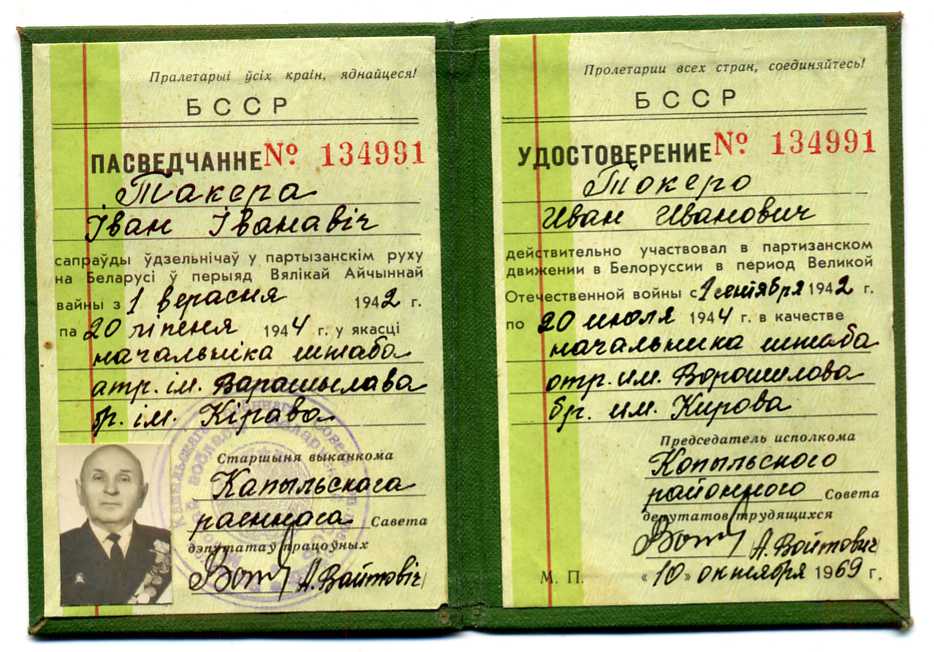 Пралетарыі ўсіх краін, яднайцеся!
БССР
ПАСВЕДЧАННЕ № 134991
Такера
Іван Іванавіч
сапраўды ўдзельнічаў у партызанскім руху
на Беларусі ў перыяд Вялікай Айчыннай
вайны з 1 верасня 1942 г.
па 20 ліпеня 1944 г. у якасці
начальніка штаба
атр. ім. Варашылава
бр. ім. Кірава
Старшыня выканкома
Капыльскага
раеннага Савета
дэпутатаў працоўных
А. Вайтовіч
Пролетарии всех стран, соединяйтесь!
БССР
УДОСТОВЕРЕНИЕ № 134991
Токеро
Иван Иванович
действительно участвовал в партизанском
движении в Белоруссии в период Великой
Отечественной войны с 1 сентября 1942 г.
по 20 июля 1944 г. в качестве
начальника штаба
отр. им. Ворошилова
бр. им. Кирова
Председатель исполкома
Копыльского
районного Совета
депутатов трудящихся
А. Войтович
М. П. «10» октября 1969 г.